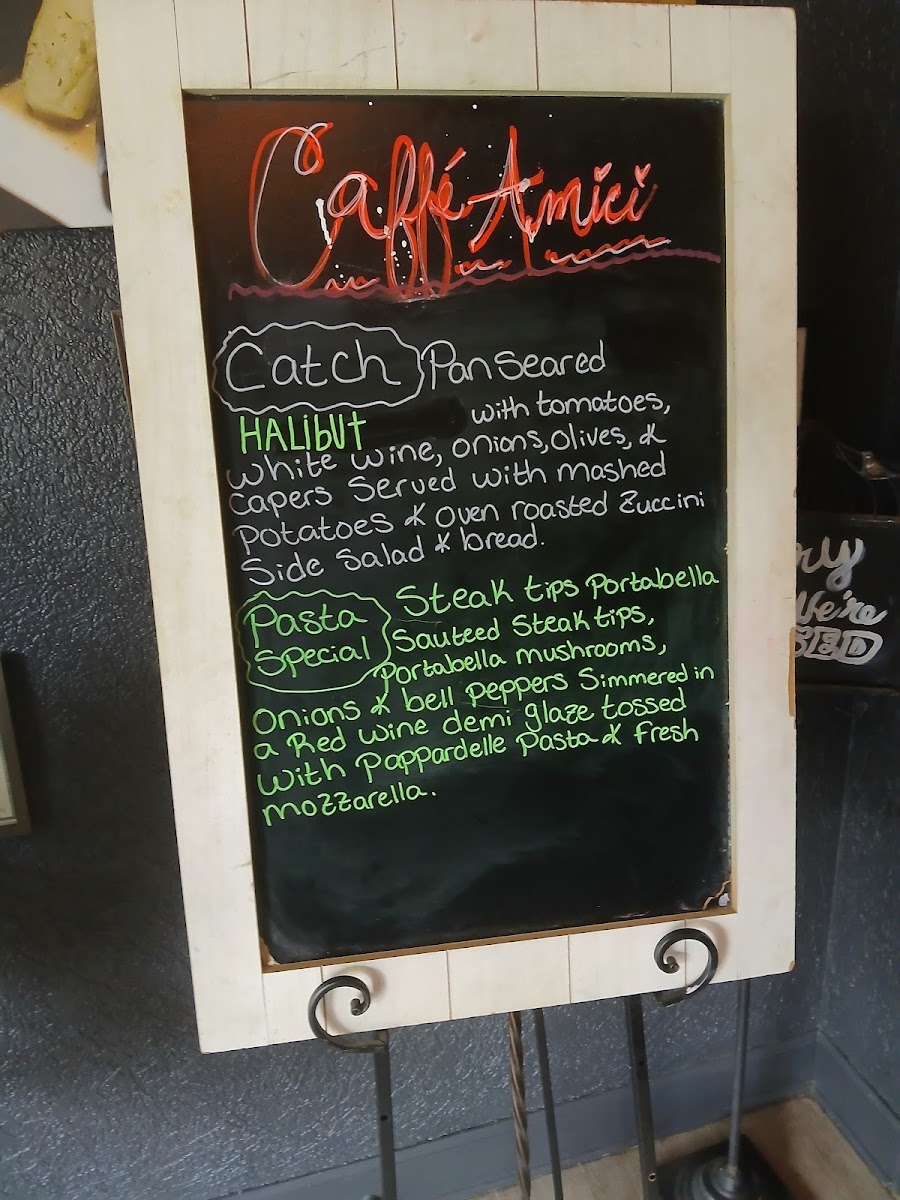 Caffé Amici
Catch Pan Seared
HALibUT with tomatoes,
White wine, onions, olives, &
capers Served with Mashed
Potatoes & oven roasted Zuccini
Side Salad & bread.
Pasta Special
Steak tips Portabella
Sauteed Steak tips,
Portabella mushrooms,
Onions & bell peppers Simmered in
a Red wine demi glaze tossed
with Pappardelle Pasta & Fresh
mozzarella.
We're